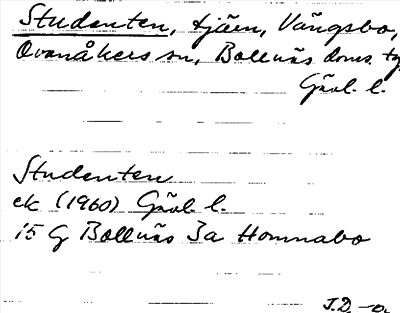 Studenten, tjärn, Vängsbo,
Ovanåkers sn, Bollnäs doms. tg
Gävl. l.
Studenten
ek (1960) Gävl. l.
15 G Bollnäs 3a Homnabo
J.D. -o.